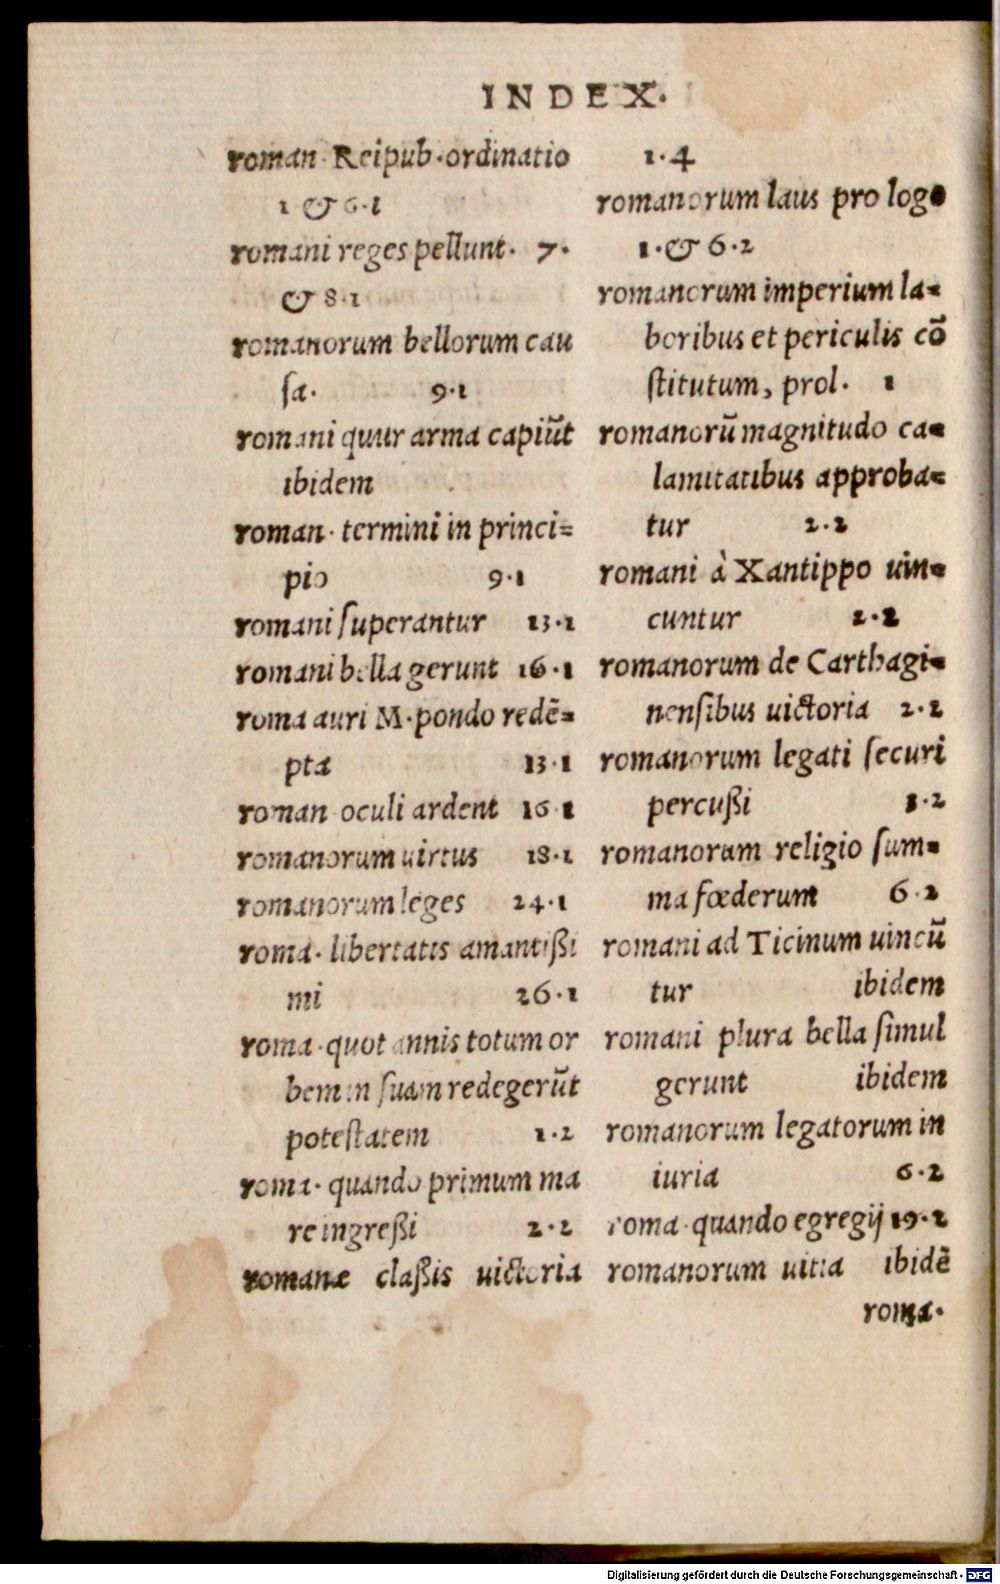 INDEX.
roman. Reipub. ordinatio
1 & 6.1
romani reges pellunt. 7.
& 8.1
romanorum bellorum cau
sa. 9.1
romani quur arma capiũt
ibidem
roman. termini in princi=
pio 9.1
romani superantur 13.1
romani bella gerunt 16.1
roma auri M. pondo redẽ=
pta 13.1
roman oculi ardent 16.1
romanorum uirtus 18.1
romanorum leges 24.1
roma. libertatis amantißi
mi 26.1
roma. quot annis totum or
bem in suam redegerũt
potestatem 1.2
roma. quando primum ma
re ingreßi 2.2
romanæ claßis uictoria
1.4
romanorum laus prologo
1. & 6.2
romanorum imperium la=
boribus et periculis cõ
stitutum, prol. 1
romanorũ magnitudo ca=
lamitatibus approba=
tur 2.2
romani à Xantippo uin=
cuntur 2.2
romanorum de Carthagi=
nensibus uictoria 2.2
romanorum legati securi
percußi 3.2
romanorum religio sum=
ma fœderum 6.2
romani ad Ticinum uincũ
tur ibidem
romani plura bella simul
gerunt ibidem
romanorum legatorum in
iuria 6.2
roma. quando egregij 19.2
romanorum uitia ibidẽ
roma.
Digitalisierung gefördert durch die Deutsche Forschungsgemeinschaft - DFG